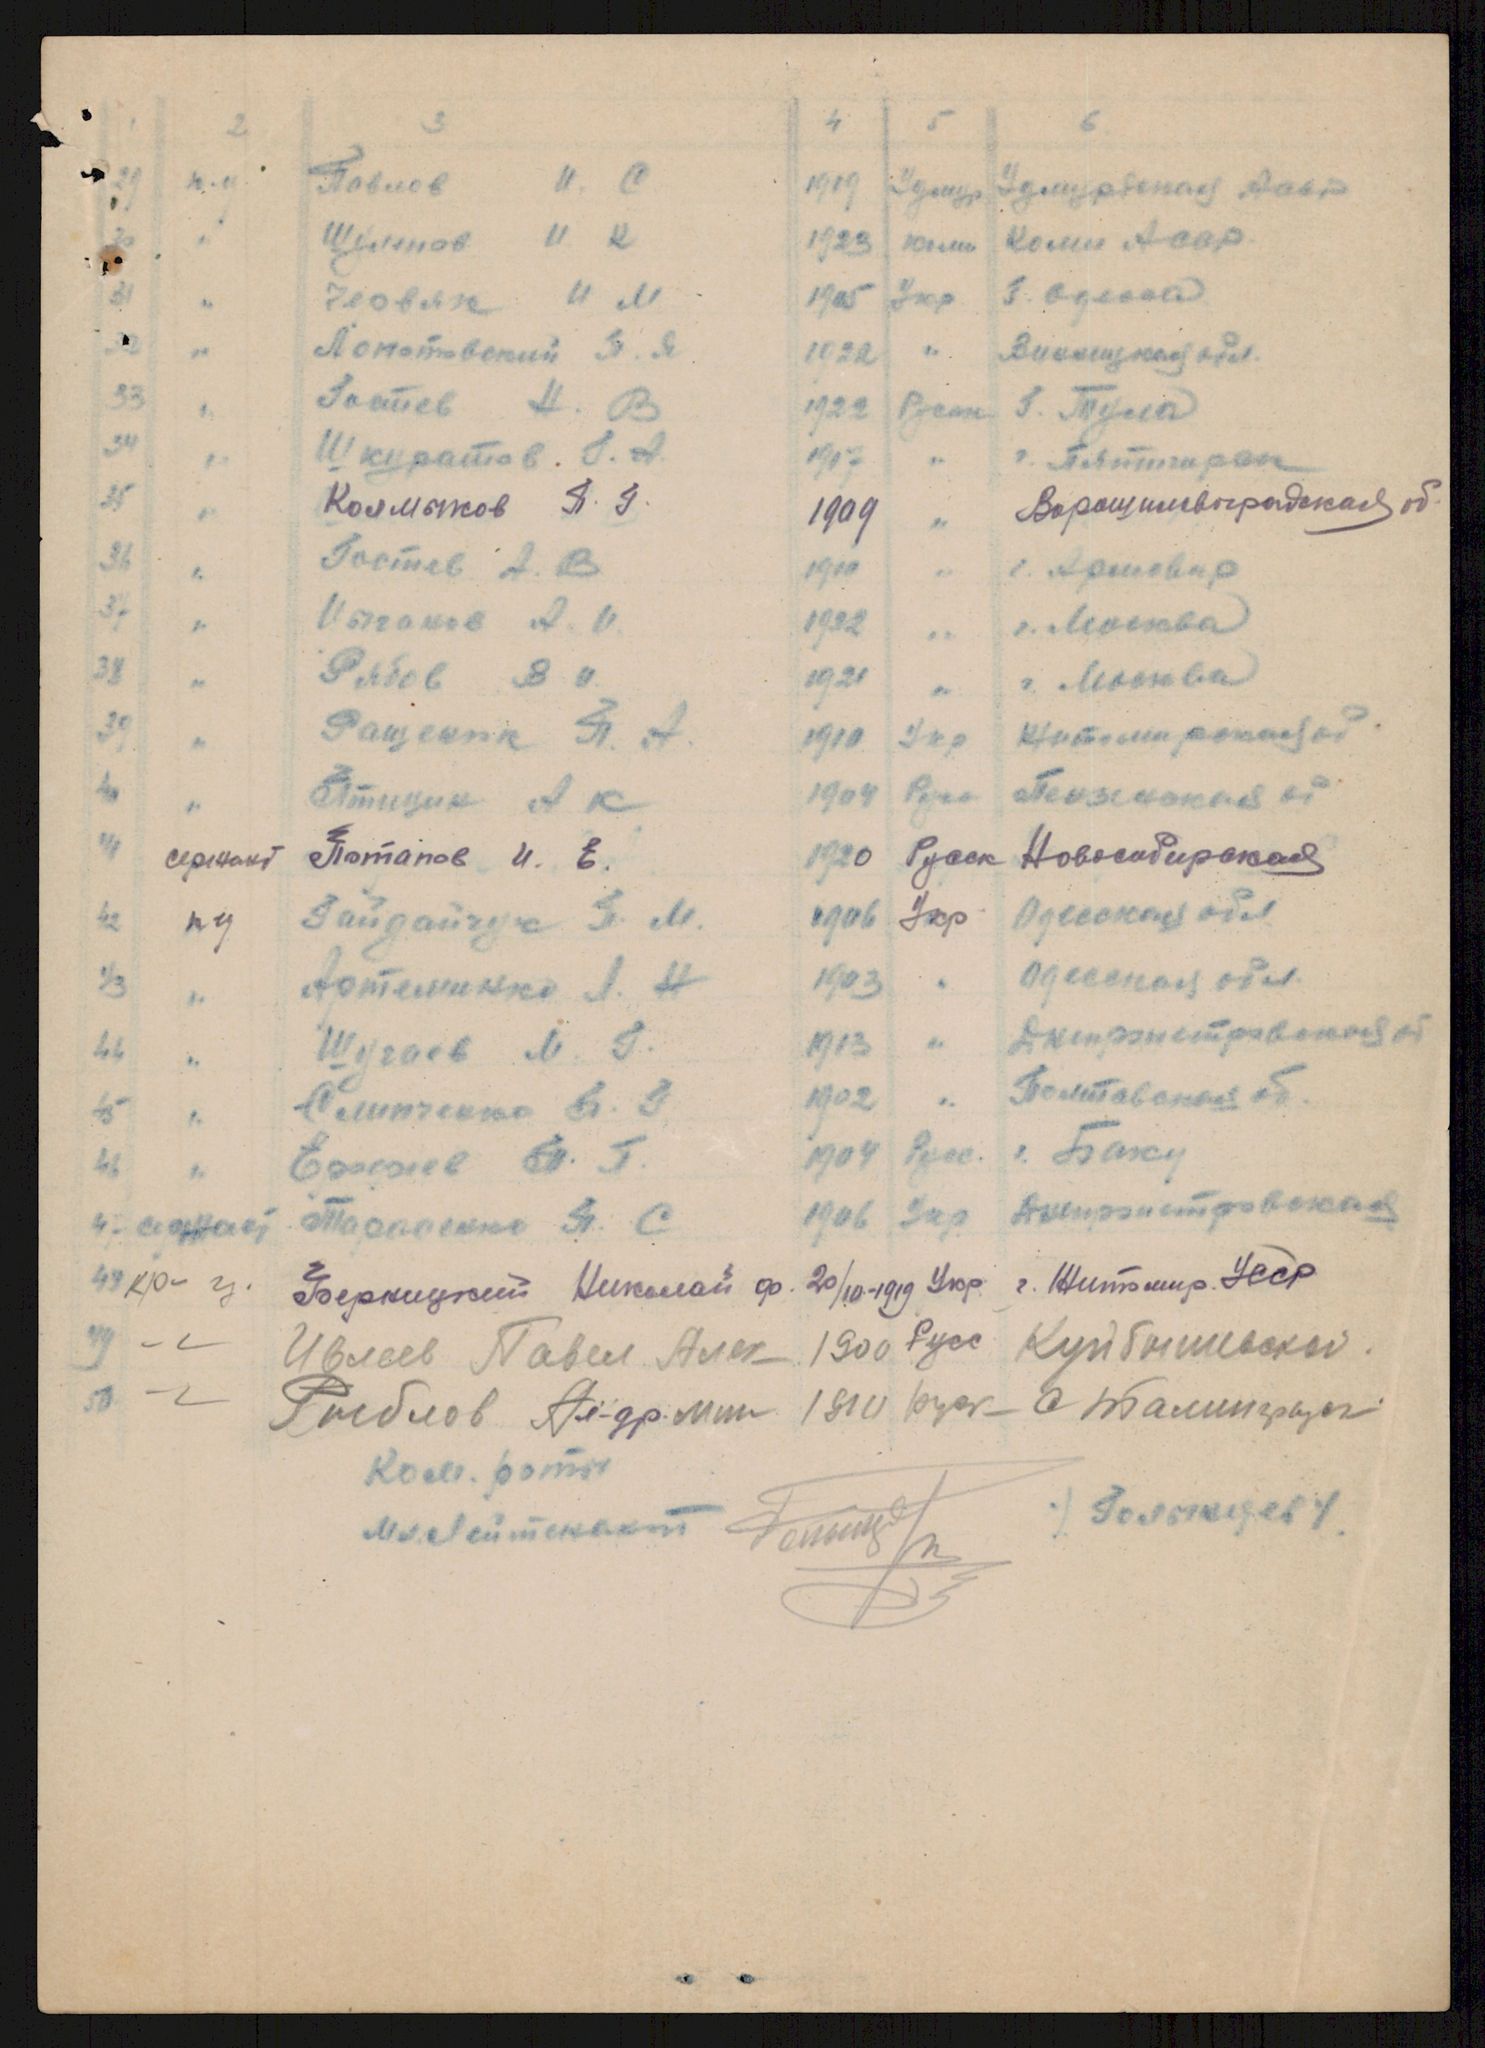 1 2 3 4 5 6
29 к.ц Павлов И. С 1919 Удмур Удмуртская Асср
30 " И К 1923 коми Коми Асср.
31 " Человяк И М 1905 Укр Г. Одесса
32 " Лопатовский П. Я 1922 " Винницкая обл.
33 " Гостев Н. В 1922 Русск Г. Тула
34 " Шкуратов Г. А. 1917 " г. Пятигорск
35 " Колмыков П. Г. 1909 " Ворошиловградская об.
36 " Гостев А. В 1910 " г. Армавир
37 " А. И. 1922 " г. Москва
38 " Рябов В И. 1921 " г. Москва
39 " Ращепк П. А. 1910 Укр Житомирская об.
40 " Птицин А К 1904 Русс Пензенская об
41 сержант Потапов И. Е. 1920 Русск Новосибирская
42 кц Гайдайчук П. М. 1906 Укр Одесская обл
43 " Артеменко Л. Н 1903 " Одесская обл.
44 " Шугаев М. Г. 1913 " Днепропетровская об
45 " Слипченко П. Г 1902 " Полтавская об.
46 " П. Г. 1904 Русс. г. Баку
47 сержант Тарасенко П. С 1906 Укр Днепропетровская
48 кр-ц. Берницкий Николай Ф. 20/10-1919 Укр. г. Житомир. УССР
49 -"- Ивлеев Павел Алек 1900 Русс Куйбышевской.
50 -"- Рыблов Ал-др. Мих 1910 русск Сталинградск.
Ком. роты
Мл. Лейтенант /Голынцев/